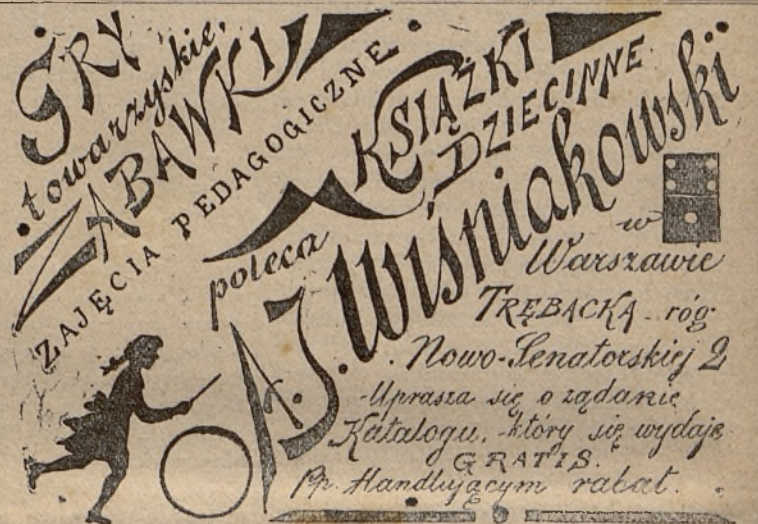 GRY
towarzyskie,
ZABAWKI
ZAJĘCIA PEDAGOGICZNE
KSIĄŻKI
DZIECINNE
poleca
A.J. Wiśniakowski
w
Warszawie
TRĘBACKA róg
Nowo-Senatorskiej 2
Uprasza się o żądanie
Katalogu, który się wydaje
GRATIS.
Pp. Handlującym rabat.